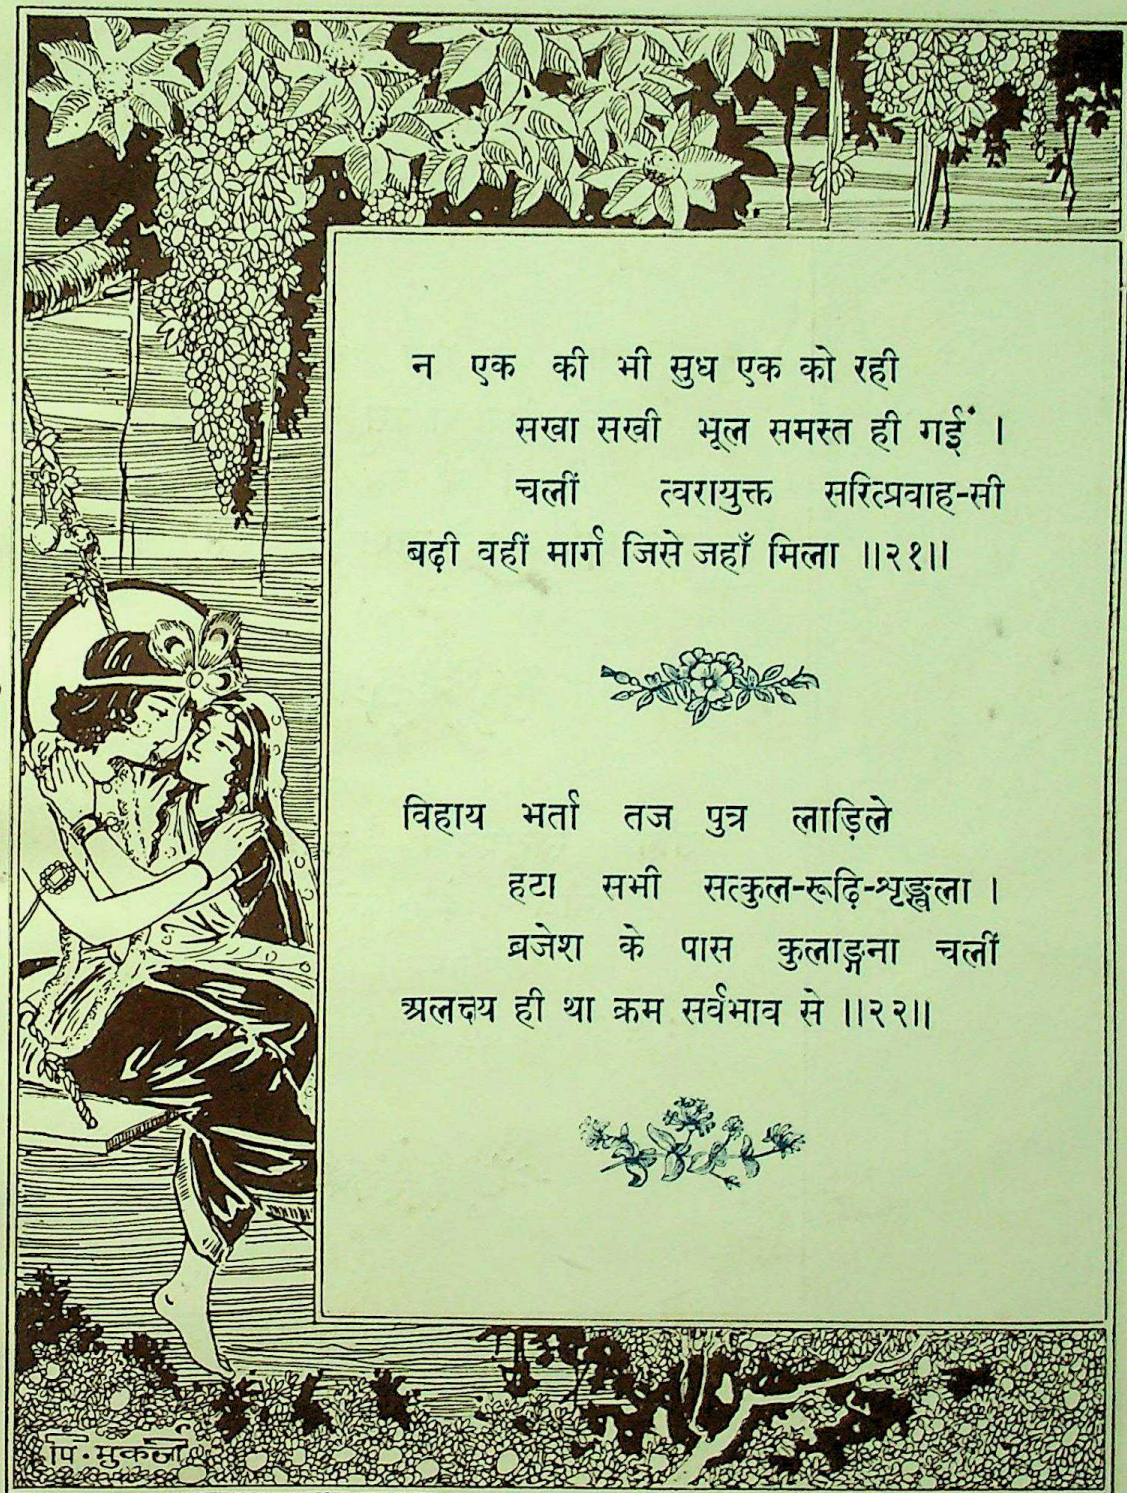 न एक की भी सुध एक को रही
सखा सखी भूल समस्त ही गईं ।
चलीं त्वरायुक्त सरित्प्रवाह-सी
बढ़ी वहीं मार्ग जिसे जहाँ मिला ॥२१॥
विहाय भर्ता तज पुत्र लाड़िले
हटा सभी सत्कुल-रूढ़ि-शृङ्खला ।
व्रजेश के पास कुलाङ्गना चलीं
अलक्ष्य ही था क्रम सर्वभाव से ॥२२॥
पि. मुकर्जी